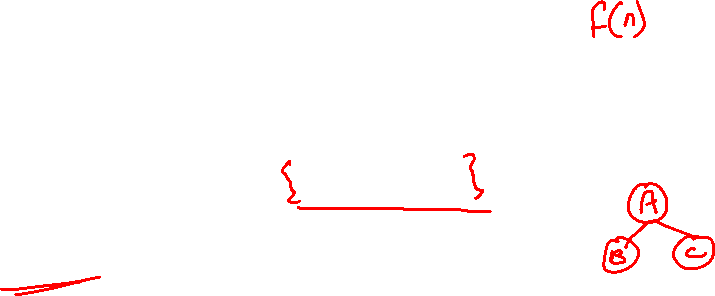 f(n)
{ }
A
B C